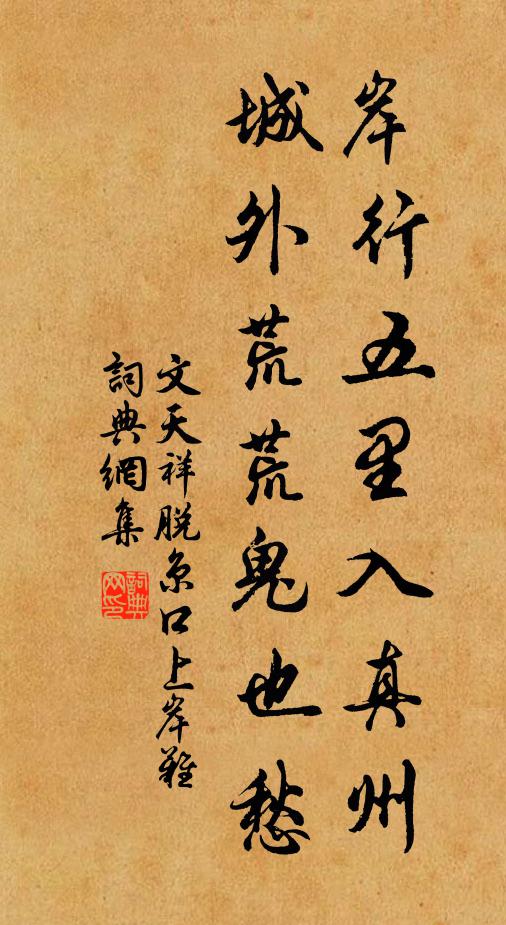 岸行五里入真州
城外荒荒鬼也愁
文天祥脱京口上岸難
詞典網集
詞典网印